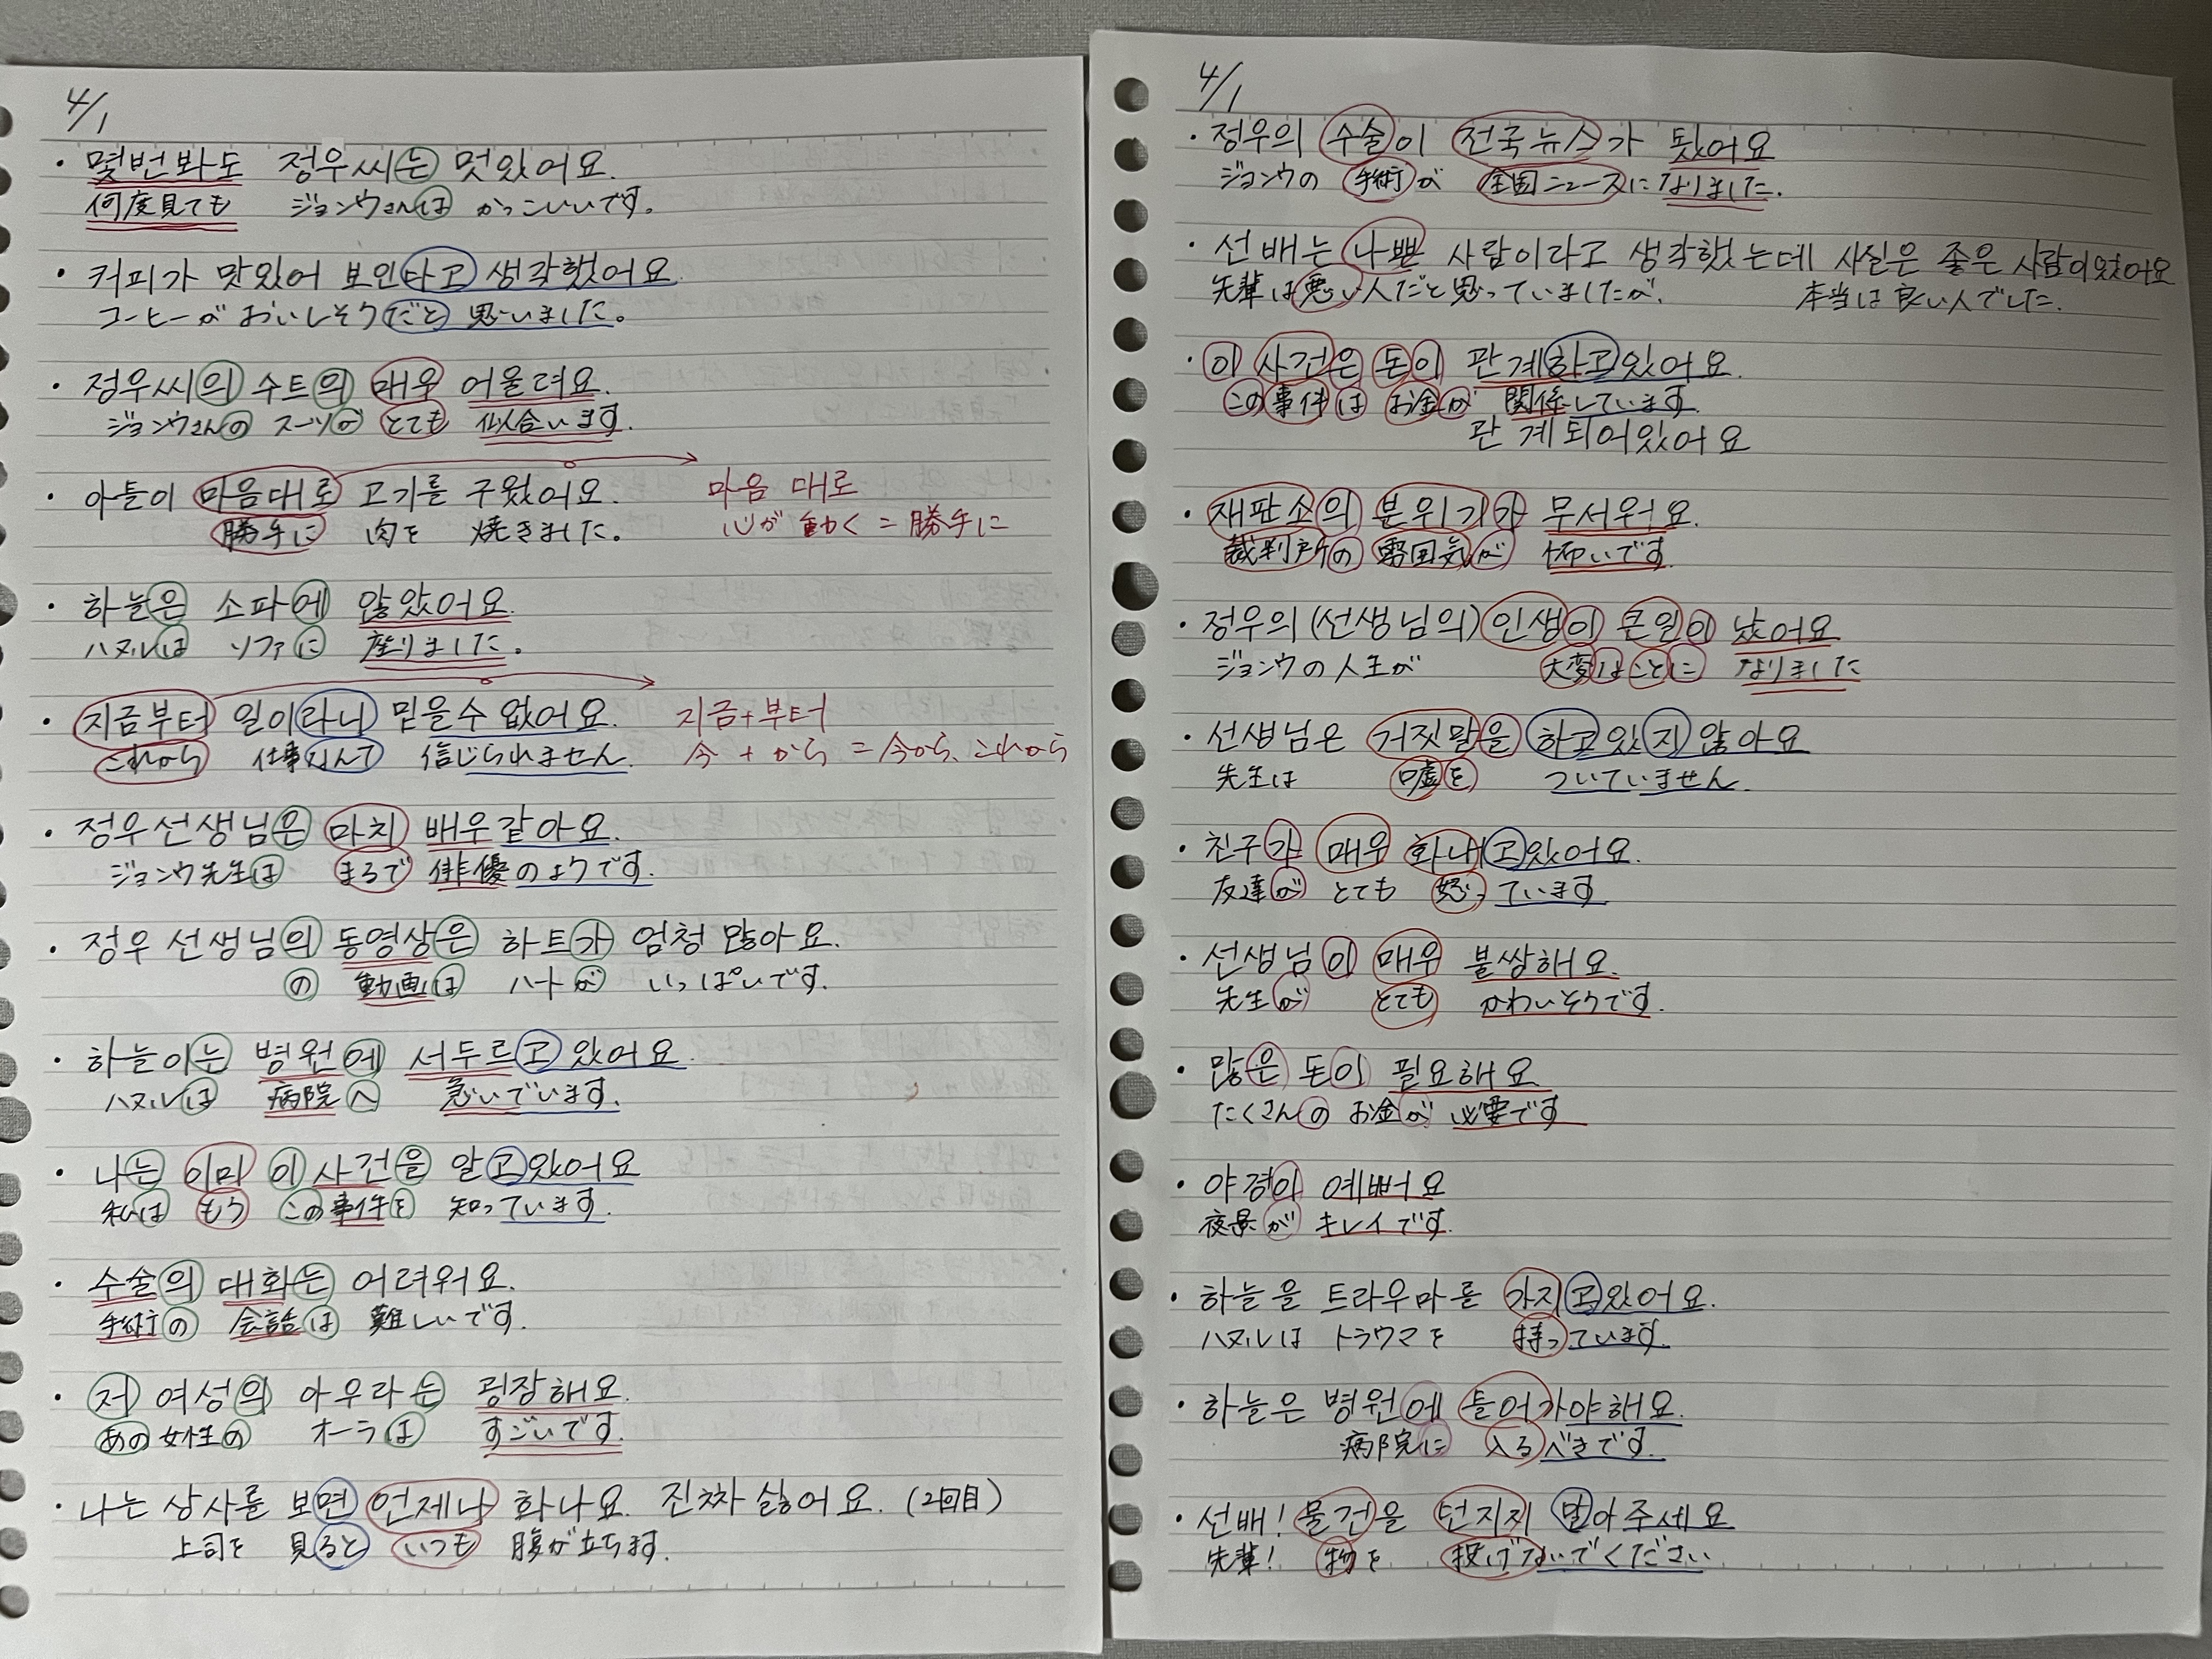 4/1
・몇번봐도 정우씨는 멋있어요.
何度見ても ジョンウさんは かっこいいです。
・커피가 맛있어 보인다고 생각했어요
コーヒーが おいしそうだと 思いました。
・정우씨의 수트의 매우 어울려요.
ジョンウさんの スーツが とても 似合います.
・아들이 마음대로 고기를 구웠어요.
勝手に 肉を 焼きました。
마음 대로
心が 動く = 勝手に
・하늘은 소파에 않았어요.
ハヌルは ソファに 座りました。
・지금부터 일이라니 믿을수 없어요.
これから 仕事なんて 信じられません.
지금+부터
今 + から = 今から、これから
・정우선생님은 마치 배우같아요.
ジョンウ先生は まるで 俳優のようです.
・정우 선생님의 동영상은 하트가 엄청 많아요.
の 動画は ハートが いっぱいです.
・하늘이는 병원에 서두르고 있어요.
ハヌルは 病院へ 急いでいます.
・나는 이미 이 사건을 알고있어요
私は もう この事件を 知っています.
・수술의 대화는 어려워요.
手術の 会話は 難しいです.
・저 여성의 아우라는 굉장해요.
あの女性の オーラは すごいです.
・나는 상사를 보면 언제나 화나요. 진짜 싫어요. (2回目)
上司を 見ると いつも 腹が立ちます.
4/1
・정우의 수술이 전국뉴스가 됐어요
ジョンウの 手術が 全国ニュースになりました.
・선배는 나쁜 사람이라고 생각했는데 사실은 좋은 사람이었어요
先輩は悪い人だと思っていましたが、 本当は良い人でした.
・이 사건은 돈이 관계하고있어요.
この事件は お金が 関係しています.
관계되어있어요
・재판소의 분위기가 무서워요.
裁判所の 雰囲気が 怖いです.
・정우의(선생님의) 인생이 큰일이 났어요
ジョンウの人生が 大変なことに なりました
・선생님은 거짓말을 하고있지 않아요
先生は 嘘を ついていません.
・친구가 매우 화내고있어요.
友達が とても 怒っています
・선생님이 매우 불쌍해요.
先生が とても かわいそうです.
・많은 돈이 필요해요
たくさんの お金が 必要です
・야경이 예뻐요
夜景が キレイです.
・하늘을 트라우마를 가지고있어요.
ハヌルは トラウマを 持っています.
・하늘은 병원에 들어가야해요.
病院に 入るべきです.
・선배! 물건을 던지지 말아주세요
先輩! 物を 投げないでください